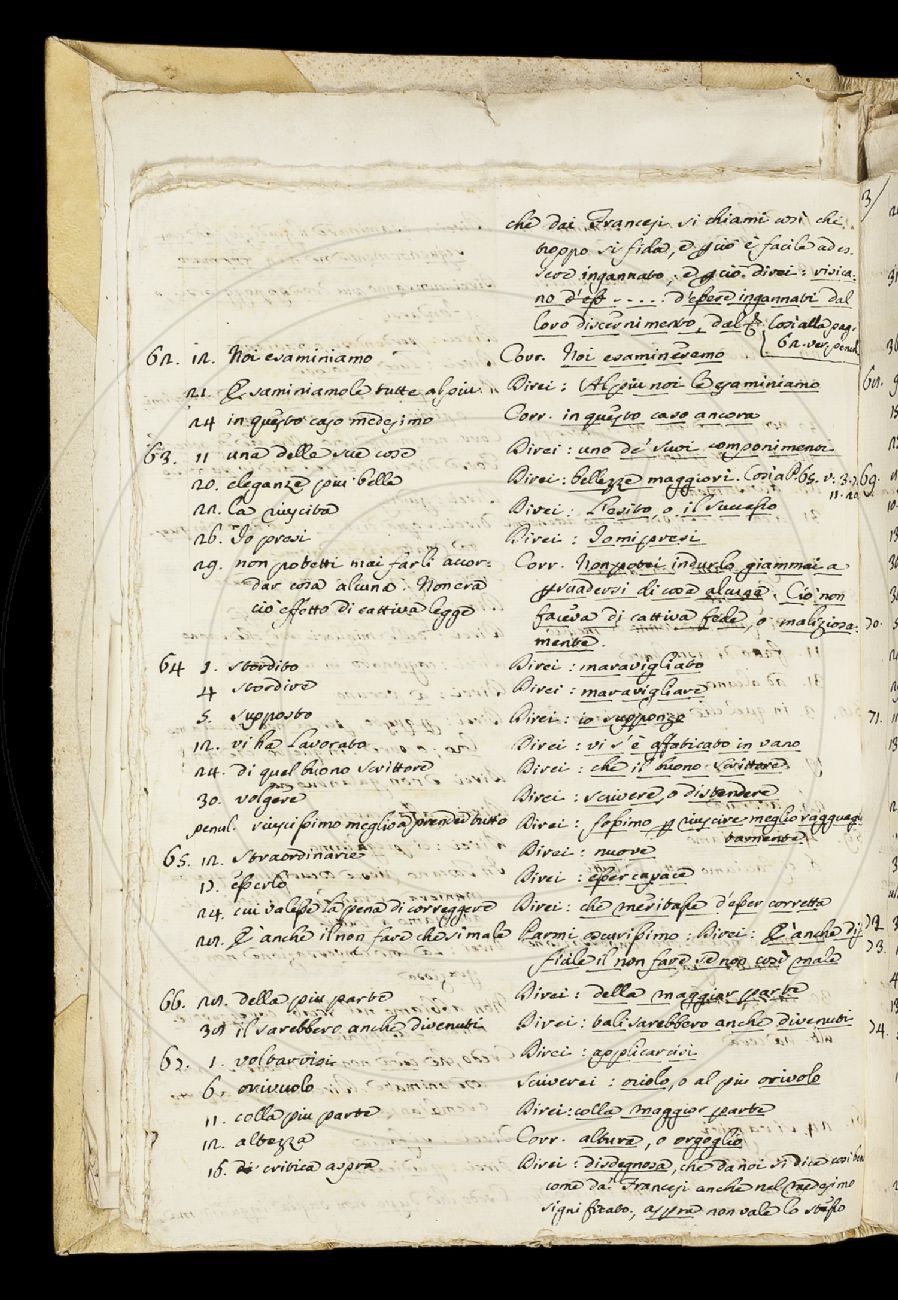 che dai Francesi si chiami così chi
troppo si fida, e pciò è facile ad es-
sere ingannato; e pciò direi: visica-
no d'esf ..... d'essere ingannati dal
loro discernimento, dal &c. Così alla pag.
62. ver. penult.
62. 12. Noi esaminiamo Corr. Noi esamineremo
21. Esaminiamole tutte al piu Direi: Al piu noi le esaminiamo
24 in questo caso medesimo Corr. in questo caso ancora
63. 11 una delle sue cose Direi: uno de' suoi componimenti
20. eleganze piu belle Direi: bellezze maggiori. Così a P. 65. v. 3.
11. 20
22. la riuscita Direi: L'esito, o il Successo
26. Io presi Direi: Io mi presi
29. non potetti mai farli accor- Corr. Non potei indurlo giammai a
dar cosa alcuna. Non era psuadersi di cosa alcuna. Ciò non
ciò effetto di cattiva legge faceva di cattiva fede, o maliziosa-
mente.
64 1. stordito Direi: maravigliato
4 stordire Direi: maravigliare
5. supposto Direi: io suppongo
12. vi ha lavorato Direi: vi s'è affaticato in vano
24. di quel buono scrittore Direi: che il buono scrittore
30. volgere Direi: scrivere, o distendere
penul. riuscissimo meglio a prender tutto Direi: fossimo p riuscire meglio ragguagli
tamente.
65. 12. Straordinarie Direi: nuove
13. esserlo Direi: esser capace
24. cui valesse la pena di correggere Direi: che meritasse d'esser corretta
27. E' anche il non fare che si male Parmi oscurissimo: Direi: E' anche dif
ficile il non fare se non così male
66. 27. della piu parte Direi: della maggior parte
30 il sarebbero anche divenuti Direi: tali sarebbero anche divenuti
67. 1. voltarvisi Direi: applicarvisi
6. orivuolo Scriverei: oriolo, o al piu orivolo
11. colla piu parte Direi: colla maggior parte
12. altezza Corr. altura, o orgoglio
16. critica aspra Direi: disdegnosa, che da noi si dice così ben
come da' Francesi anche nel medesimo
significato, aspra non vale lo stesso
3/